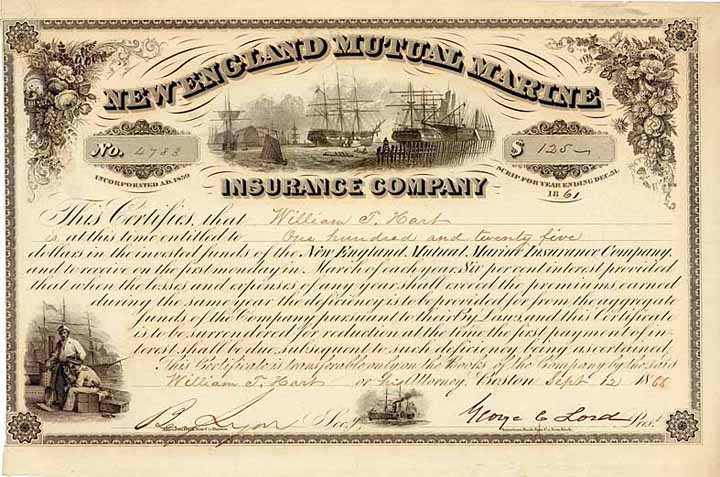 NEW ENGLAND MUTUAL MARINE
No. 4783
$ 125
INCORPORATED A.D. 1859
SCRIP FOR YEAR ENDING DEC. 31.
1861
INSURANCE COMPANY
This Certifies, that William T. Hart
is at this time entitled to One hundred and twenty five
dollars in the invested funds of the New England Mutual Marine Insurance Company,
and to receive on the first monday in March of each year, Six per cent interest provided
that when the losses and expenses of any year shall exceed the premiums earned
during the same year the deficiency is to be provided for from the aggregate
funds of the Company pursuant to their By Laws, and this Certificate
is to be surrendered for reduction at the time the first payment of in-
terest shall be due, subsequent to such deficiency being ascertained.
This Certificate is transferable only on the Books of the Company by the said
William T. Hart or his Attorney. Boston Sept 12 1866
Lyon Secy.
George C Lord Pres.t
American Bank Note Co. Boston.
American Bank Note Co. New York.